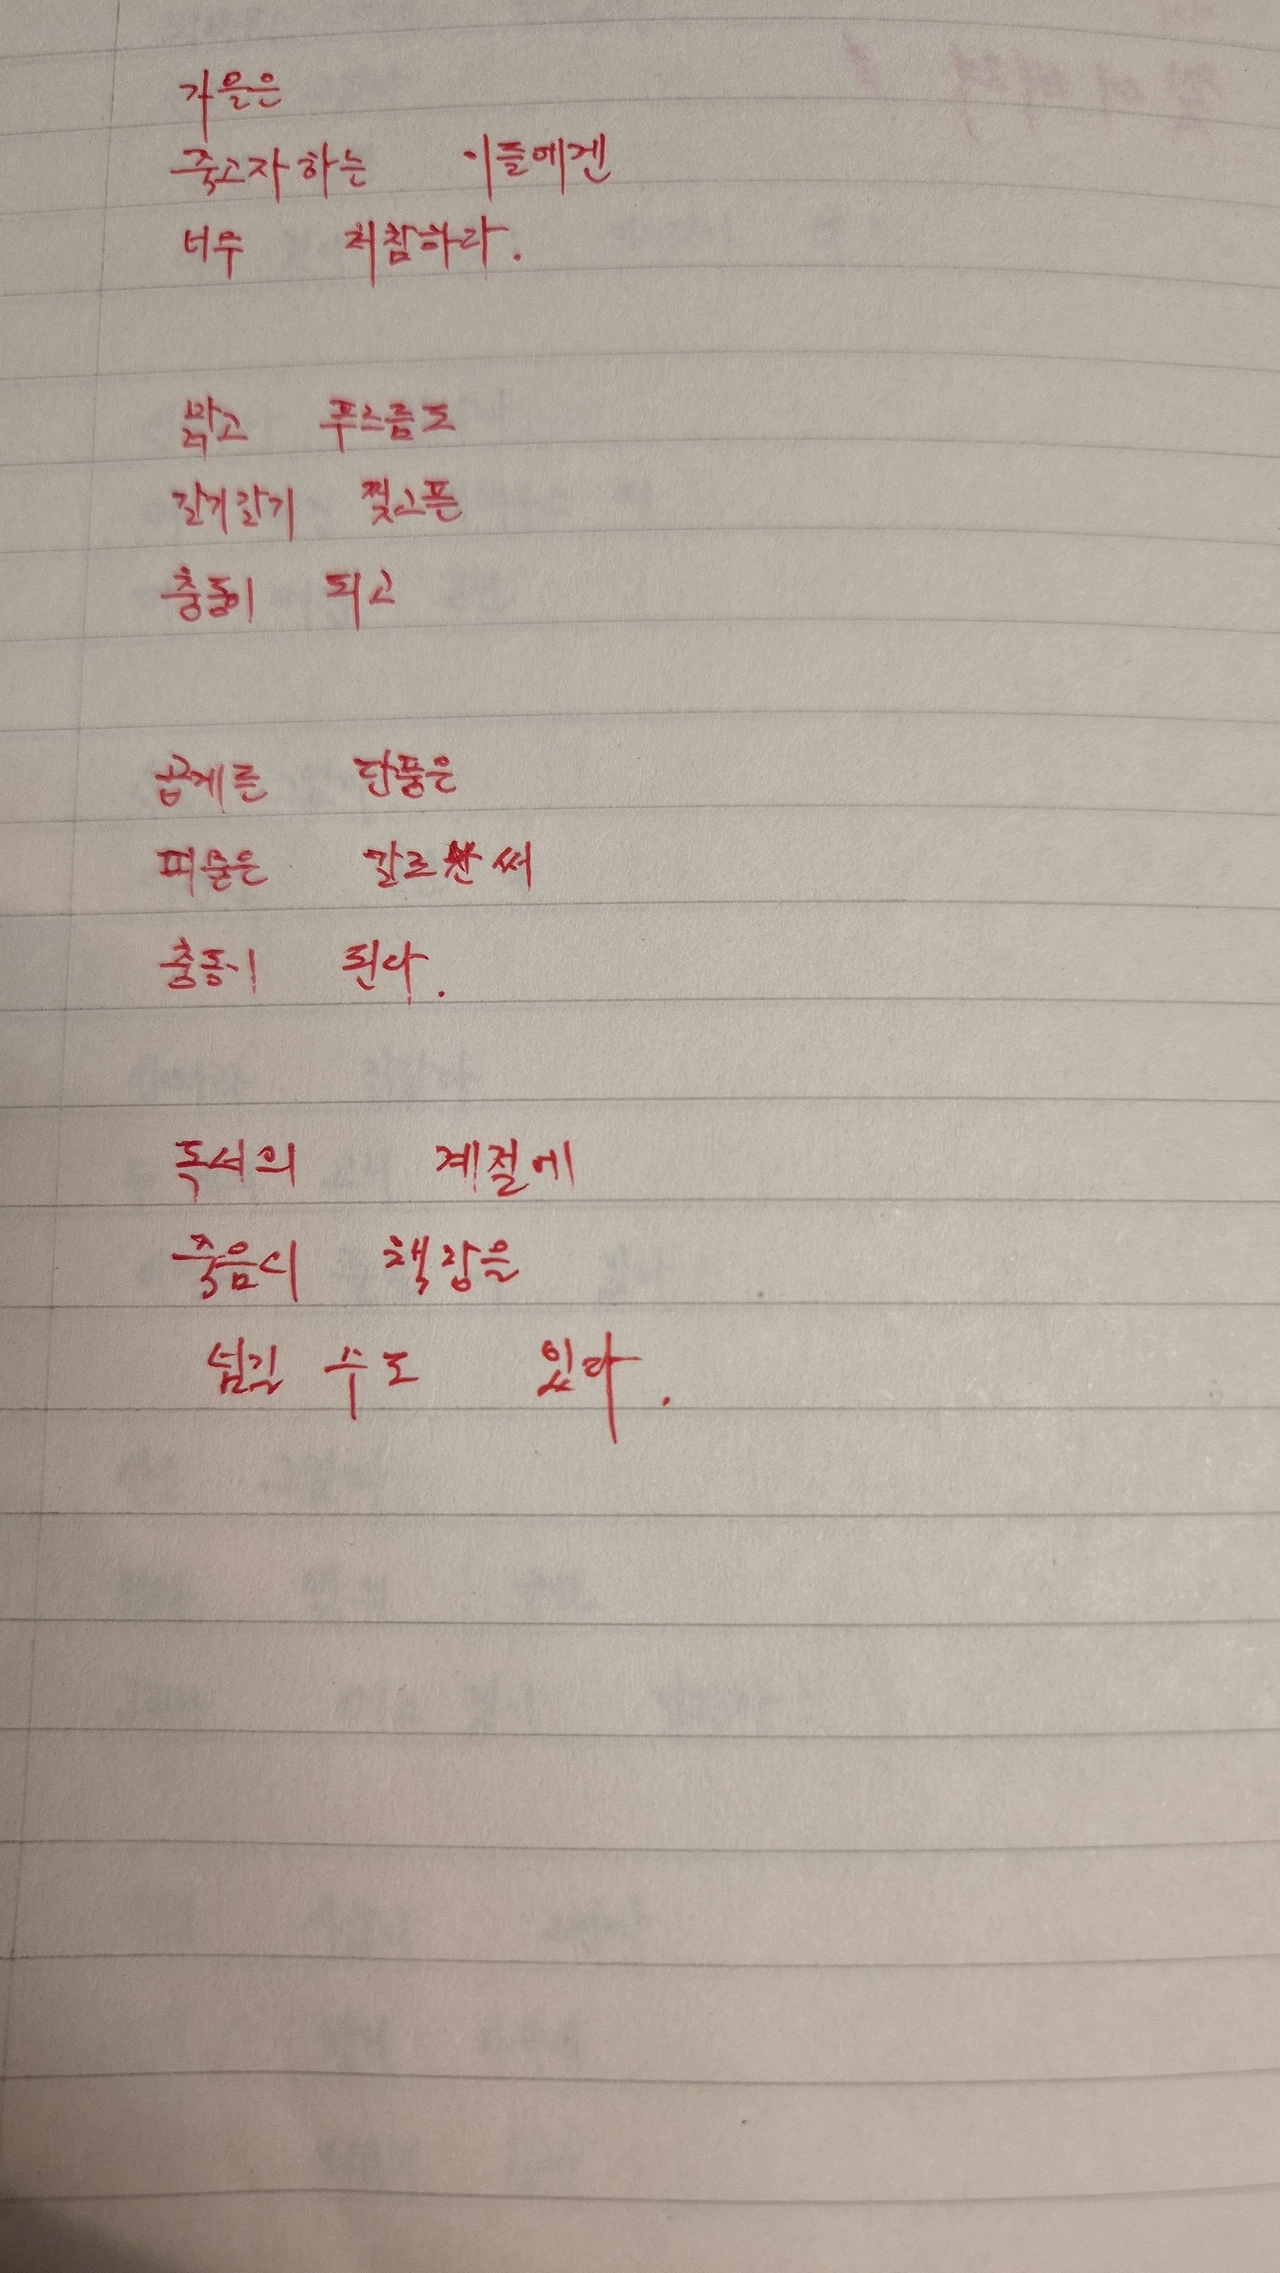 가을은
죽고자하는 이들에겐
너무 처참하다.
맑고 푸스름도
갈기갈기 찢고픈
충동이 되고
곱게든 단풍은
피묻은 칼로써
충동이 된다.
독서의 계절에
죽음이 책장을
넘길 수도 있다.